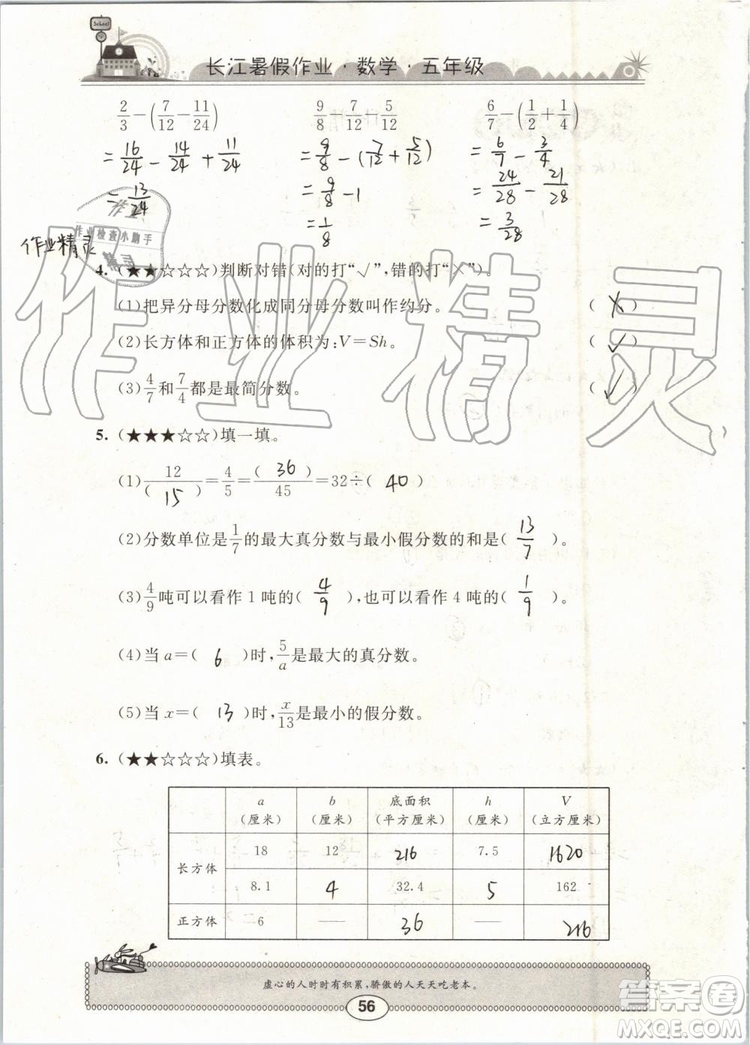 School
长江暑假作业·数学·五年级
2/3-(7/12-11/24)  9/8-7/12-5/12  6/7-(1/2+1/4)
=16/24-14/24+11/24  =9/8-(7/12+5/12)  =6/7-3/4
=13/24  =9/8-1  =24/28-21/28
=1/8  =3/28
作业
作业检查小助手
精灵
作业精灵
作业精灵
4.(★★☆☆☆)判断对错(对的打“√”,错的打“×”)
(1)把异分母分数化成同分母分数叫作约分。 (×)
(2)长方体和正方体的体积为:V=Sh。 (√)
(3)4/7和7/4都是最简分数。 (√)
5.(★★★☆☆)填一填。
(1)12/(15)=4/5=(36)/45=32÷(40)
(2)分数单位是1/7的最大真分数与最小假分数的和是(13/7)。
(3)4/9吨可以看作1吨的(4/9),也可以看作4吨的(1/9)。
(4)当a=(6)时,5/a是最大的真分数。
(5)当x=(13)时,x/13是最小的假分数。
6.(★★☆☆☆)填表。
a(厘米) b(厘米) 底面积(平方厘米) h(厘米) V(立方厘米)
长方体 18 12 216 7.5 1620
8.1 4 32.4 5 162
正方体 6 — 36 — 216
虚心的人时时有积累,骄傲的人天天吃老本。
56
答案圈
MXQE.COM